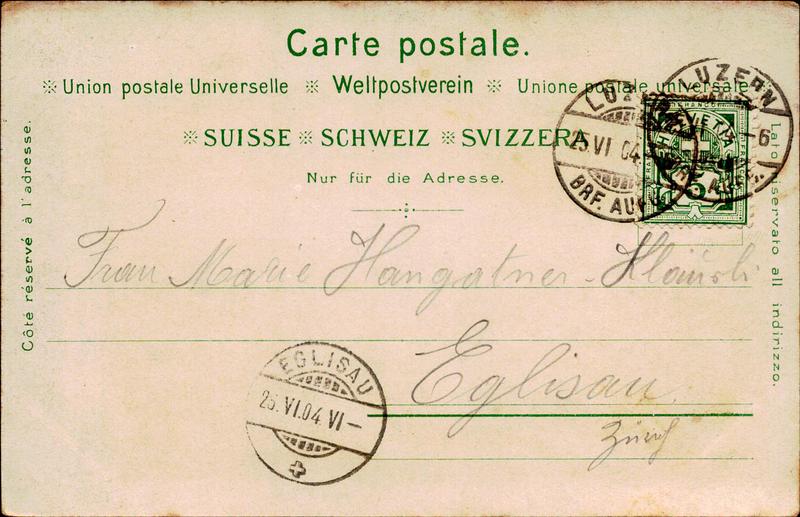 Carte postale.
※ Union postale Universelle ※ Weltpostverein ※ Unione postale universale
※ SUISSE ※ SCHWEIZ ※ SVIZZERA
Nur für die Adresse.
Côté réservé à l'adresse.
Lato riservato all indirizzo.
LUZERN
25.VI.04.
BRF. AUFG.
LUZERN
-6
BRF. AUFG.
HELVETIA
5
Frau Marie Hangartner-Kläusli
Eglisau
Zürich
EGLISAU
25.VI.04.VI-